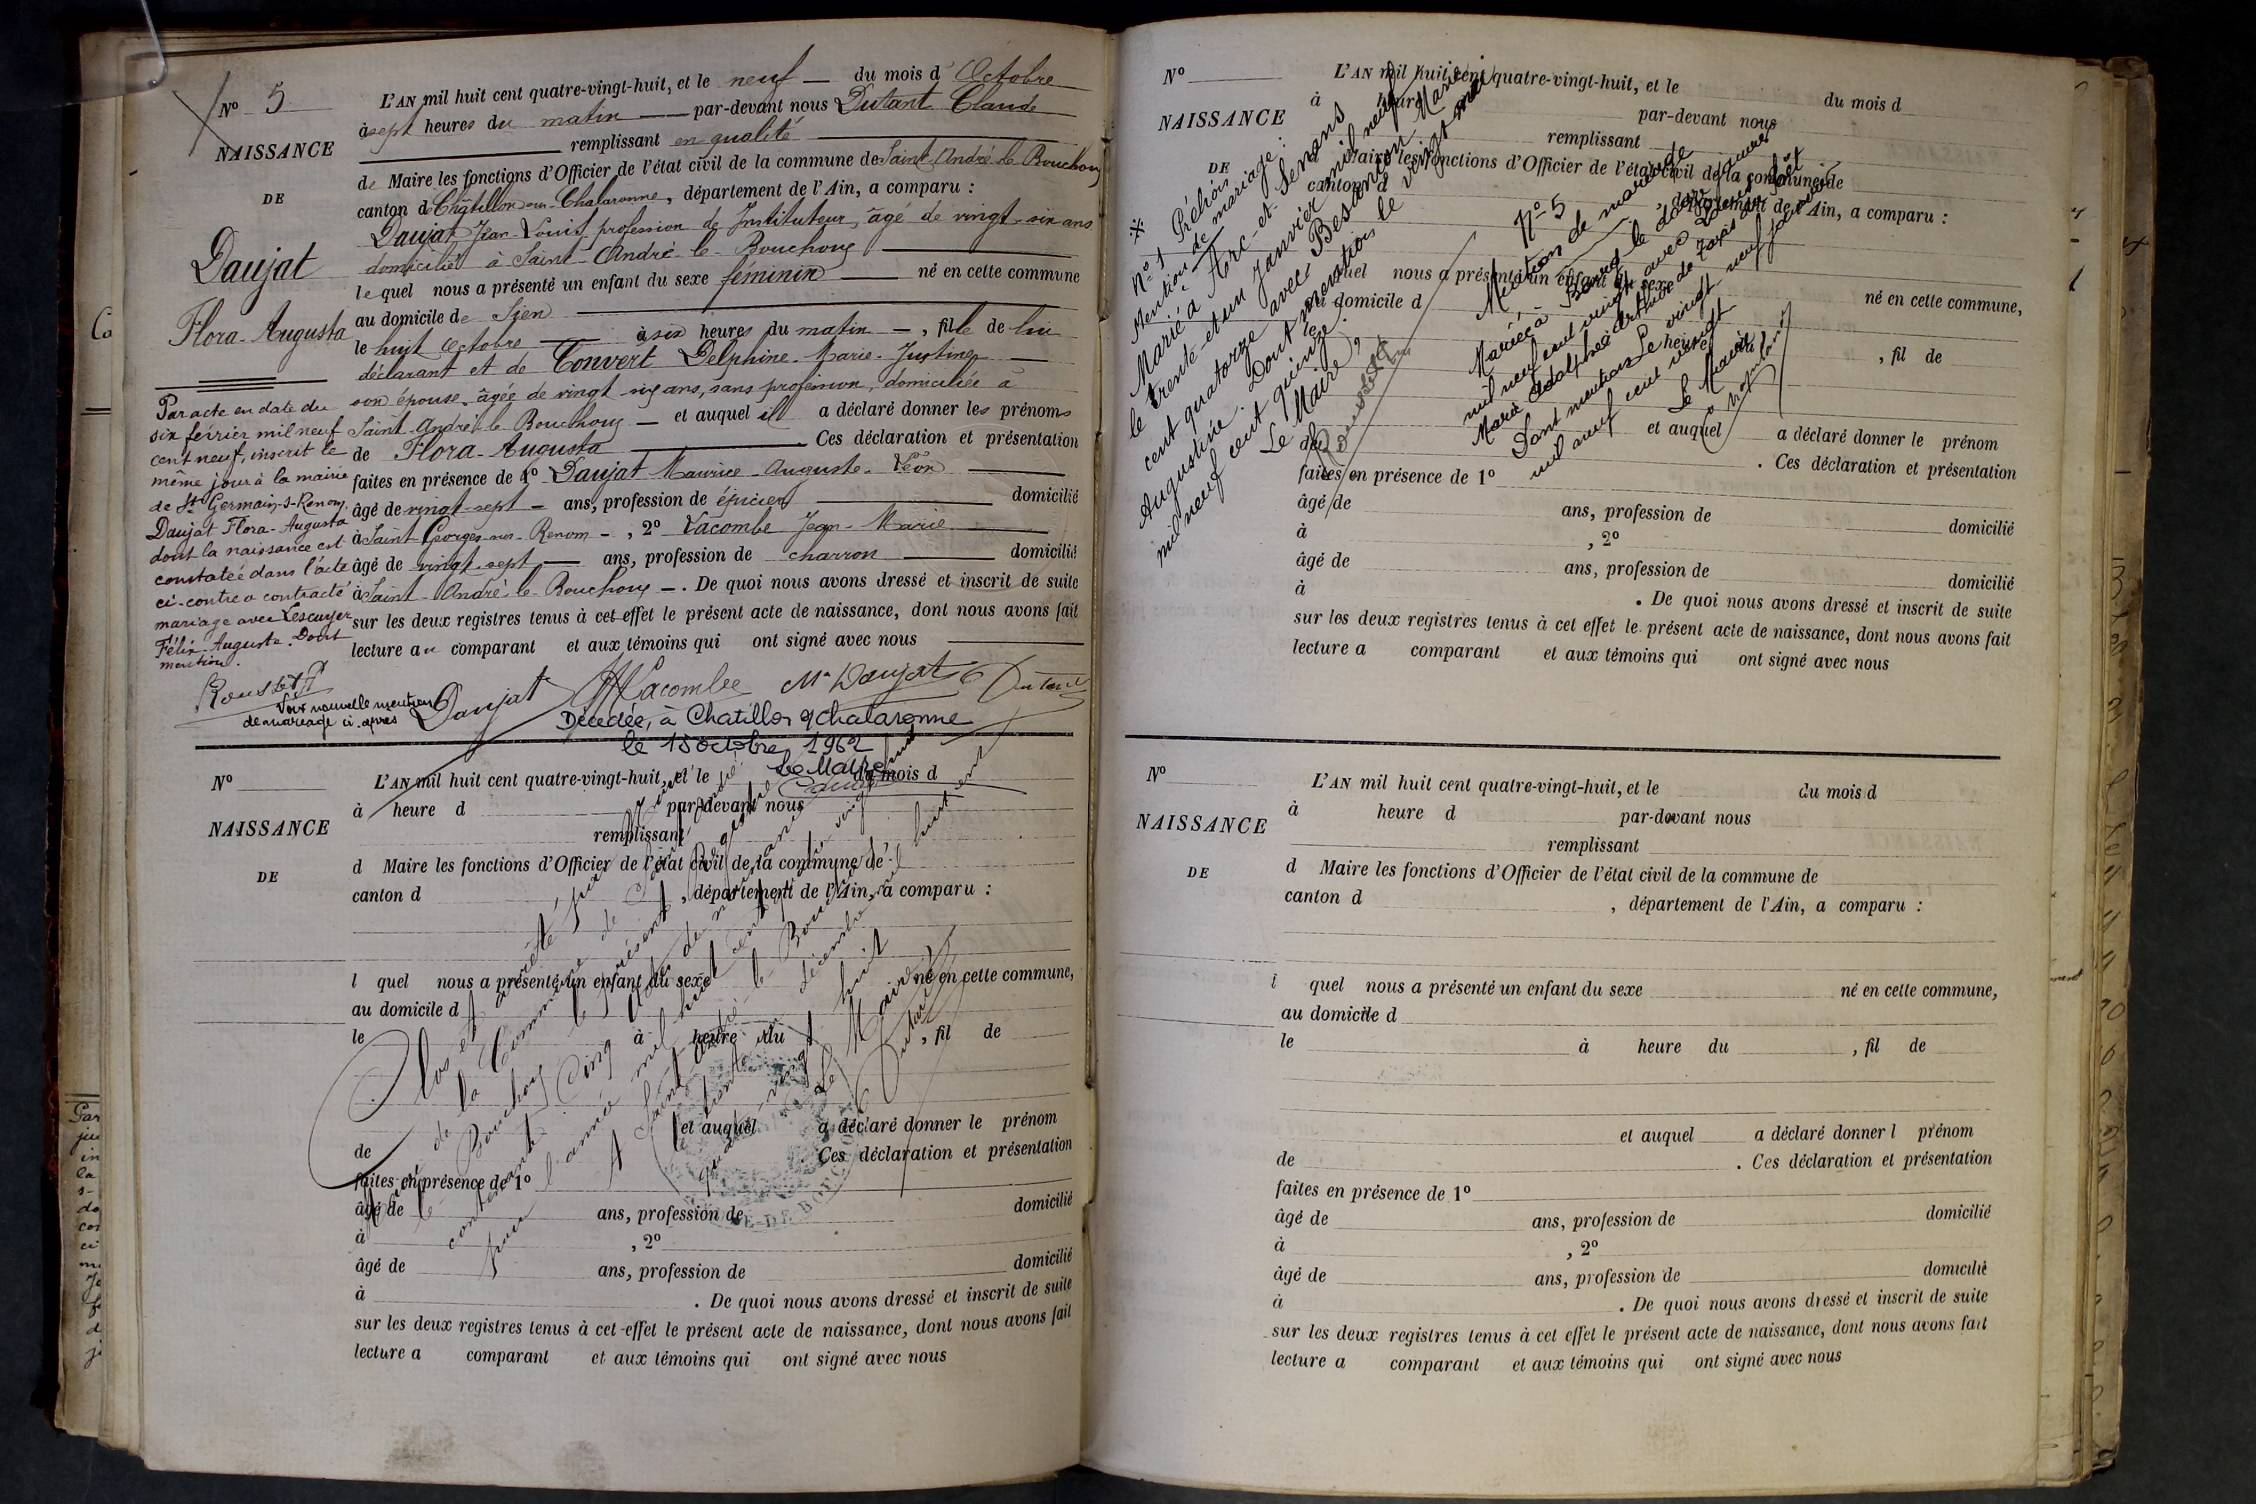 N° 5
NAISSANCE
DE
Daujat
Flora-Augusta
Par acte en date du
six février mil neuf
cent neuf, inscrit le
même jour à la mairie
de St Germain-s-Renom,
Daujat Flora-Augusta
dont la naissance est
constatée dans l'acte
ci-contre a contracté
mariage avec Lescuyer
Félix-Auguste. Dont
mention.
Rousset
Voir nouvelle mention
de mariage ci-après
L'AN mil huit cent quatre-vingt-huit, et le neuf du mois d'Octobre
à sept heures du matin par-devant nous Dutant Claude
remplissant en qualité
de Maire les fonctions d'Officier de l'état civil de la commune de Saint-André-le-Bouchoux
canton de Châtillon-sur-Chalaronne, département de l'Ain, a comparu :
Daujat Jean-Louis, profession de Instituteur, âgé de vingt-six ans
domicilié à Saint-André-le-Bouchoux
lequel nous a présenté un enfant du sexe féminin né en cette commune
au domicile de Sien
le huit Octobre à six heures du matin, fille de lui
déclarant et de Convert Delphine-Marie-Justine
son épouse, âgée de vingt six ans, sans profession, domiciliée à
Saint-André-le-Bouchoux et auquel il a déclaré donner les prénoms
de Flora-Augusta Ces déclaration et présentation
faites en présence de 1° Daujat Maurice-Auguste-Léon
âgé de vingt-sept ans, profession de épicier domicilié
à Saint-Georges-sur-Renom, 2° Lacombe Jean-Marie
âgé de vingt-sept ans, profession de charron domicilié
à Saint-André-le-Bouchoux. De quoi nous avons dressé et inscrit de suite
sur les deux registres tenus à cet effet le présent acte de naissance, dont nous avons fait
lecture au comparant et aux témoins qui ont signé avec nous
Daujat Lacombe Mce Daujat Dutant
Décédée, à Chatillon s/chalaronne
le 15 octobre 1962
Le Maire
N°
NAISSANCE
DE
L'AN mil huit cent quatre-vingt-huit, et le du mois d
à heure d par-devant nous
remplissant
d Maire les fonctions d'Officier de l'état civil de la commune de
canton d , département de l'Ain, a comparu :
l quel nous a présenté un enfant du sexe né en cette commune,
au domicile d
le à heure du , fil de
et auquel a déclaré donner le prénom
de Ces déclaration et présentation
faites en présence de 1°
âgé de ans, profession de domicilié
à , 2°
âgé de ans, profession de domicilié
à . De quoi nous avons dressé et inscrit de suite
sur les deux registres tenus à cet effet le présent acte de naissance, dont nous avons fait
lecture a comparant et aux témoins qui ont signé avec nous
Clos et arrêté par
de la Commune de
Bouchoux le présent
contenant Cinq
pour l'année mil huit cent
A Saint André le Bouchoux
le trente un décembre mil huit cent
quatre-vingt huit
Le Maire
Dutant
N°
NAISSANCE
DE
L'AN mil huit cent quatre-vingt-huit, et le du mois d
à heure par-devant nous
remplissant
Maire les fonctions d'Officier de l'état civil de la commune de
canton d , département de l'Ain, a comparu :
quel nous a présenté un enfant du sexe né en cette commune,
au domicile d
le heure du , fil de
et auquel a déclaré donner le prénom
de . Ces déclaration et présentation
faites en présence de 1°
âgé de ans, profession de domicilié
à , 2°
âgé de ans, profession de domicilié
à . De quoi nous avons dressé et inscrit de suite
sur les deux registres tenus à cet effet le présent acte de naissance, dont nous avons fait
lecture a comparant et aux témoins qui ont signé avec nous
N° 1
Mention de mariage :
Marié à Arc-et-Senans
le trente-et-un Janvier mil neuf
cent quatorze avec Besançon Marie
Augustine. Dont mention le vingt mai
mil neuf cent quinze.
Le Maire,
Rousset
N° 5
Mention de mariage
Mariée à Bourg le douze
mil neuf cent vingt avec
Marie Adolphe Arthur de
Dont mention Le vingt neuf janvier
mil neuf cent vingt
Le Maire
N°
NAISSANCE
DE
L'AN mil huit cent quatre-vingt-huit, et le du mois d
à heure d par-devant nous
remplissant
d Maire les fonctions d'Officier de l'état civil de la commune de
canton d , département de l'Ain, a comparu :
l quel nous a présenté un enfant du sexe né en cette commune,
au domicile d
le à heure du , fil de
et auquel a déclaré donner l prénom
de . Ces déclaration et présentation
faites en présence de 1°
âgé de ans, profession de domicilié
à , 2°
âgé de ans, profession de domicilié
à . De quoi nous avons dressé et inscrit de suite
sur les deux registres tenus à cet effet le présent acte de naissance, dont nous avons fait
lecture a comparant et aux témoins qui ont signé avec nous